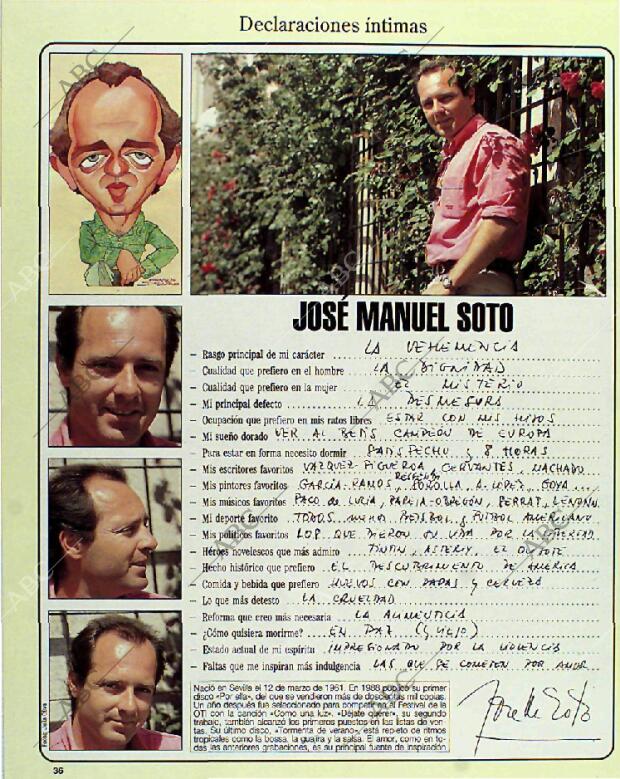 Declaraciones íntimas
JOSÉ MANUEL SOTO
– Rasgo principal de mi carácter LA VEHEMENCIA
– Cualidad que prefiero en el hombre LA DIGNIDAD
– Cualidad que prefiero en la mujer EL MISTERIO
– Mi principal defecto LA DESMESURA
– Ocupación que prefiero en mis ratos libres ESTAR CON MIS HIJOS
– Mi sueño dorado VER AL BETIS CAMPEON DE EUROPA
– Para estar en forma necesito dormir SATISFECHO y 8 HORAS
– Mis escritores favoritos VAZQUEZ FIGUEROA, CERVANTES, MACHADO
– Mis pintores favoritos GARCIA RAMOS, SOROLLA, A. LOPEZ, GOYA
– Mis músicos favoritos PACO de LUCIA, PAREJA-OBREGON, SERRAT, LENNON
– Mi deporte favorito TODOS MENOS BEISBOL y FUTBOL AMERICANO
– Mis políticos favoritos LOS QUE DIERON SU VIDA POR LA LIBERTAD
– Héroes novelescos que más admiro TINTIN, ASTERIX, EL QUIJOTE
– Hecho histórico que prefiero EL DESCUBRIMIENTO DE AMERICA
– Comida y bebida que prefiero HUEVOS CON PAPAS y CERVEZA
– Lo que más detesto LA CRUELDAD
– Reforma que creo más necesaria LA ALIMENTICIA
– ¿Cómo quisiera morirme? EN PAZ (y VIEJO)
– Estado actual de mi espíritu IMPRESIONADO POR LA VIOLENCIA
– Faltas que me inspiran más indulgencia LAS QUE SE COMETEN POR AMOR
Nació en Sevilla el 12 de marzo de 1961. En 1988 publicó su primer
disco «Por ella», del que se vendieron más de doscientas mil copias.
Un año después fue seleccionado para competir en el Festival de la
OTI con la canción «Como una luz». «Déjate querer», su segundo
trabajo, también alcanzó los primeros puestos en las listas de ven-
tas. Su último disco, «Tormenta de verano», está repleto de ritmos
tropicales como la bossa, la guajira y la salsa. El amor, como en to-
das las anteriores grabaciones, es su principal fuente de inspiración
José M. Soto
36